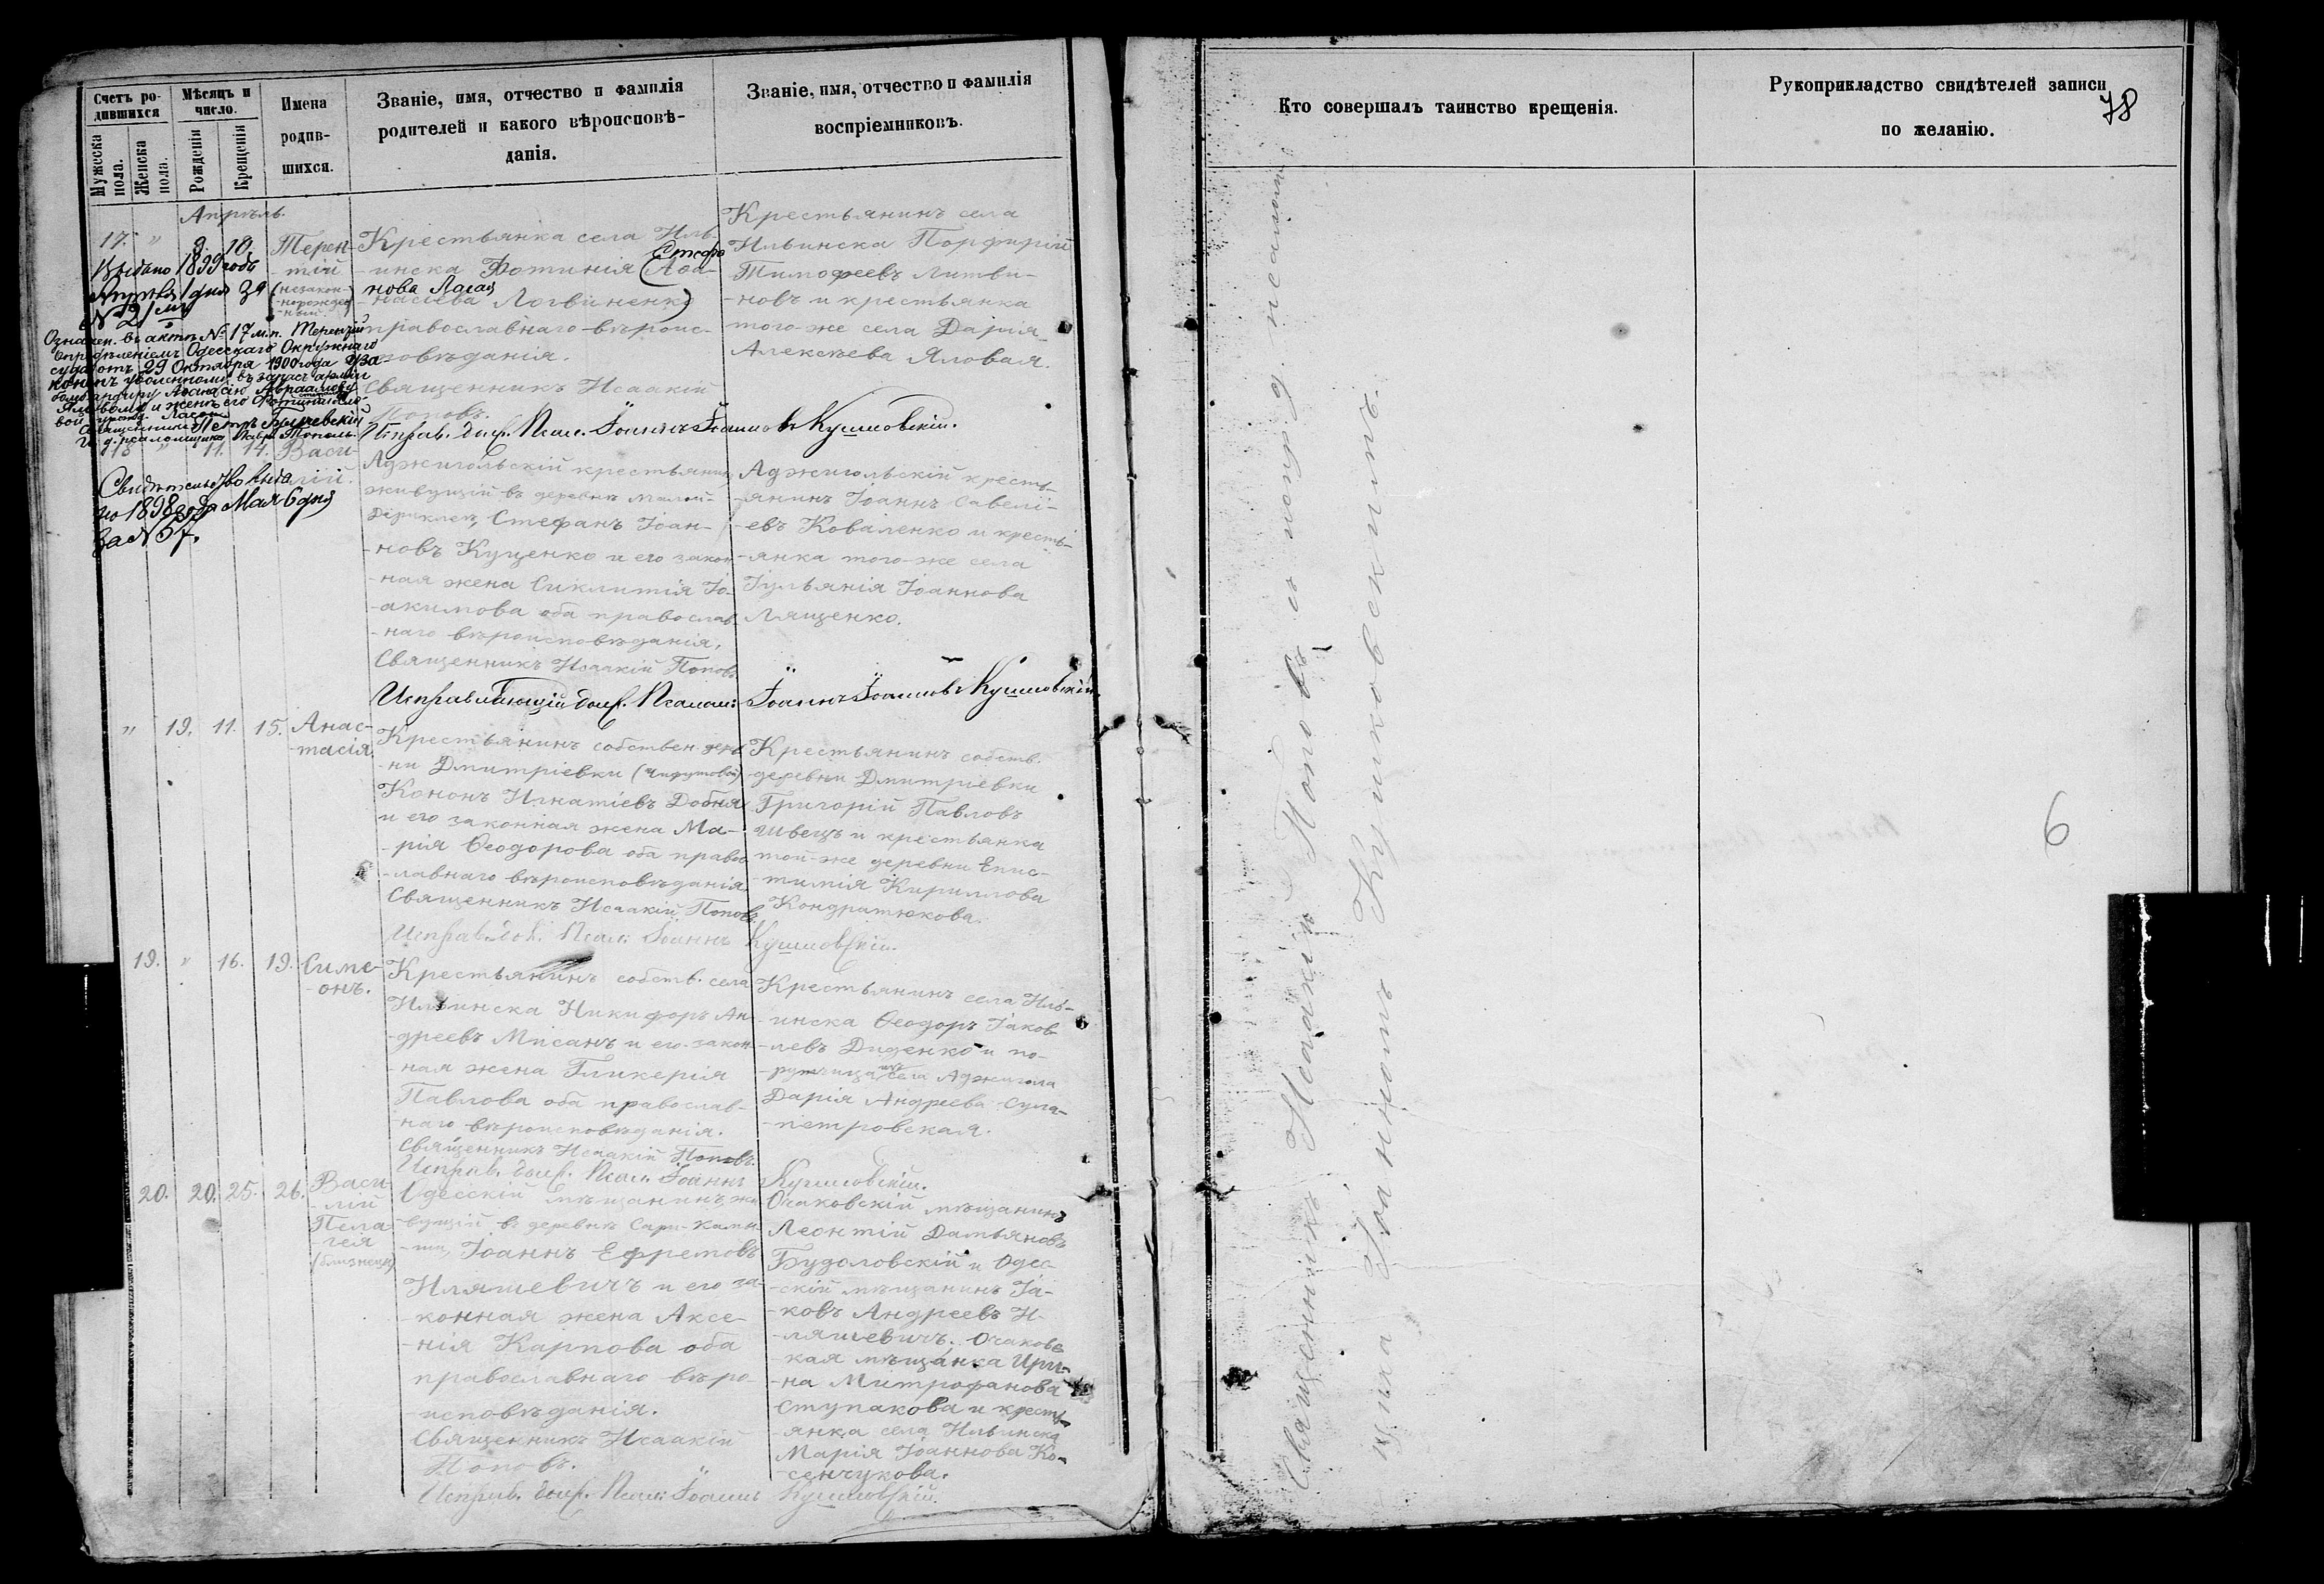 Счетъ ро-
дившихся
Мужеска пола.
Женска пола.
Мѣсяцъ и
число.
Рожденія
Крещенія
Имена
родив-
шихся.
Званіе, имя, отчество и фамилія
родителей и какого вѣроисповѣ-
данія.
Званіе, имя, отчество и фамилія
воспріемниковъ.
Апрѣль.
17. " 8. 10.
Терен-
тій
(незакон-
норожден-
ный.)
Крестьянка села Иль-
инска Фотинія (Аѳа-
Стефа
нова Ласая
насіева Логвиненко)
православнаго вѣроис-
повѣданія.
Священникъ Исаакій
Поповъ.
Исправ. долж. Псал. Іоаннъ Іоанновъ Кушковскій.
Крестьянинъ села
Ильинска Порфирій
Тимофеевъ Литви-
новъ и крестьянка
того-же села Дарія
Алексѣева Яловая.
Выдано 1899 годъ
Апрѣля 1 дня за
№ 21
Означен. въ актѣ № 17 м.п. Терентій
опредѣленіемъ Одесскаго Окружнаго
суда отъ 29 Октября 1900 года уза
коненъ уволенному въ запасъ арміи
бомбардиру Аѳанасію Авраамову
и женѣ его Фотиніи
Священникъ Петръ
18 " 11. 14. Васи-
лій.
Свидѣтельство выда
но 1898 года Мая 6 дня
за № 57.
Аджигольскій крестьянинъ
живущій въ деревнѣ Малой-
Дериклеѣ, Стефанъ Іоан-
новъ Куценко и его закон-
ная жена Сиклитія Іо-
акимова оба православ-
наго вѣроисповѣданія.
Священникъ Исаакій Поповъ
Исправляющій долж. Псалом. Іоаннъ Іоанновъ Кушковскій.
Аджигольскій кресть-
янинъ Іоаннъ Савелі-
евъ Коваленко и кресть-
янка того-же села
Іульянія Іоаннова
Лященко.
" 19. 11. 15. Анас-
тасія.
Крестьянинъ собствен. дерев
ни Дмитріевки
Кононъ Игнатіевъ Добня
и его законная жена Ма-
рія Ѳеодорова оба правос
лавнаго вѣроисповѣданія.
Священникъ Исаакій Поповъ.
Исправ. дол. Псал. Іоаннъ Кушковскій.
Крестьянинъ собств.
деревни Дмитріевки
Григорій Павловъ
Швецъ и крестьянка
той-же деревни Епис-
тимія Кириллова
Кондратюкова.
19. " 16. 19. Симе-
онъ.
Крестьянинъ собств. села
Ильинска Никифоръ Ан-
дреевъ Мисанъ и его закон-
ная жена Гликерія
Павлова оба православ-
наго вѣроисповѣданія.
Священникъ Исаакій Поповъ.
Исправ. долж. Псал. Іоаннъ Кушковскій.
Крестьянинъ села Иль-
инска Ѳеодоръ Іаков-
левъ Диденко и по-
ручица села Аджигола
Дарія Андреева Сула-
петровская.
20. 20. 25. 26. Васи
лій
Пела-
гея
(близнецы)
Одесскій мѣщанинъ, жи
вущій въ деревнѣ Сари-Камы-
ши, Іоаннъ Ефремовъ
Иляшевичъ и его за-
конная жена Аксе-
нія Карпова оба
православнаго вѣро-
исповѣданія.
Священникъ Исаакій
Поповъ.
Исправ. долж. Псал. Іоаннъ Кушковскій.
Очаковскій мѣщанинъ
Леонтій Дамьяновъ
Будоловскій и Одес-
скій мѣщанинъ Іа-
ковъ Андреевъ И-
ляшевичъ. Очаковс
кая мѣщанка Ири-
на Митрофанова
Ступакова и кресть-
янка села Ильинска
Марія Іоаннова Ко-
сенчукова.
Кто совершалъ таинство крещенія.
Рукоприкладство свидѣтелей записи
по желанію.
78
Священникъ Исаакій Поповъ съ испр. д. псалом
щика Іоанномъ Кушковскимъ.
6